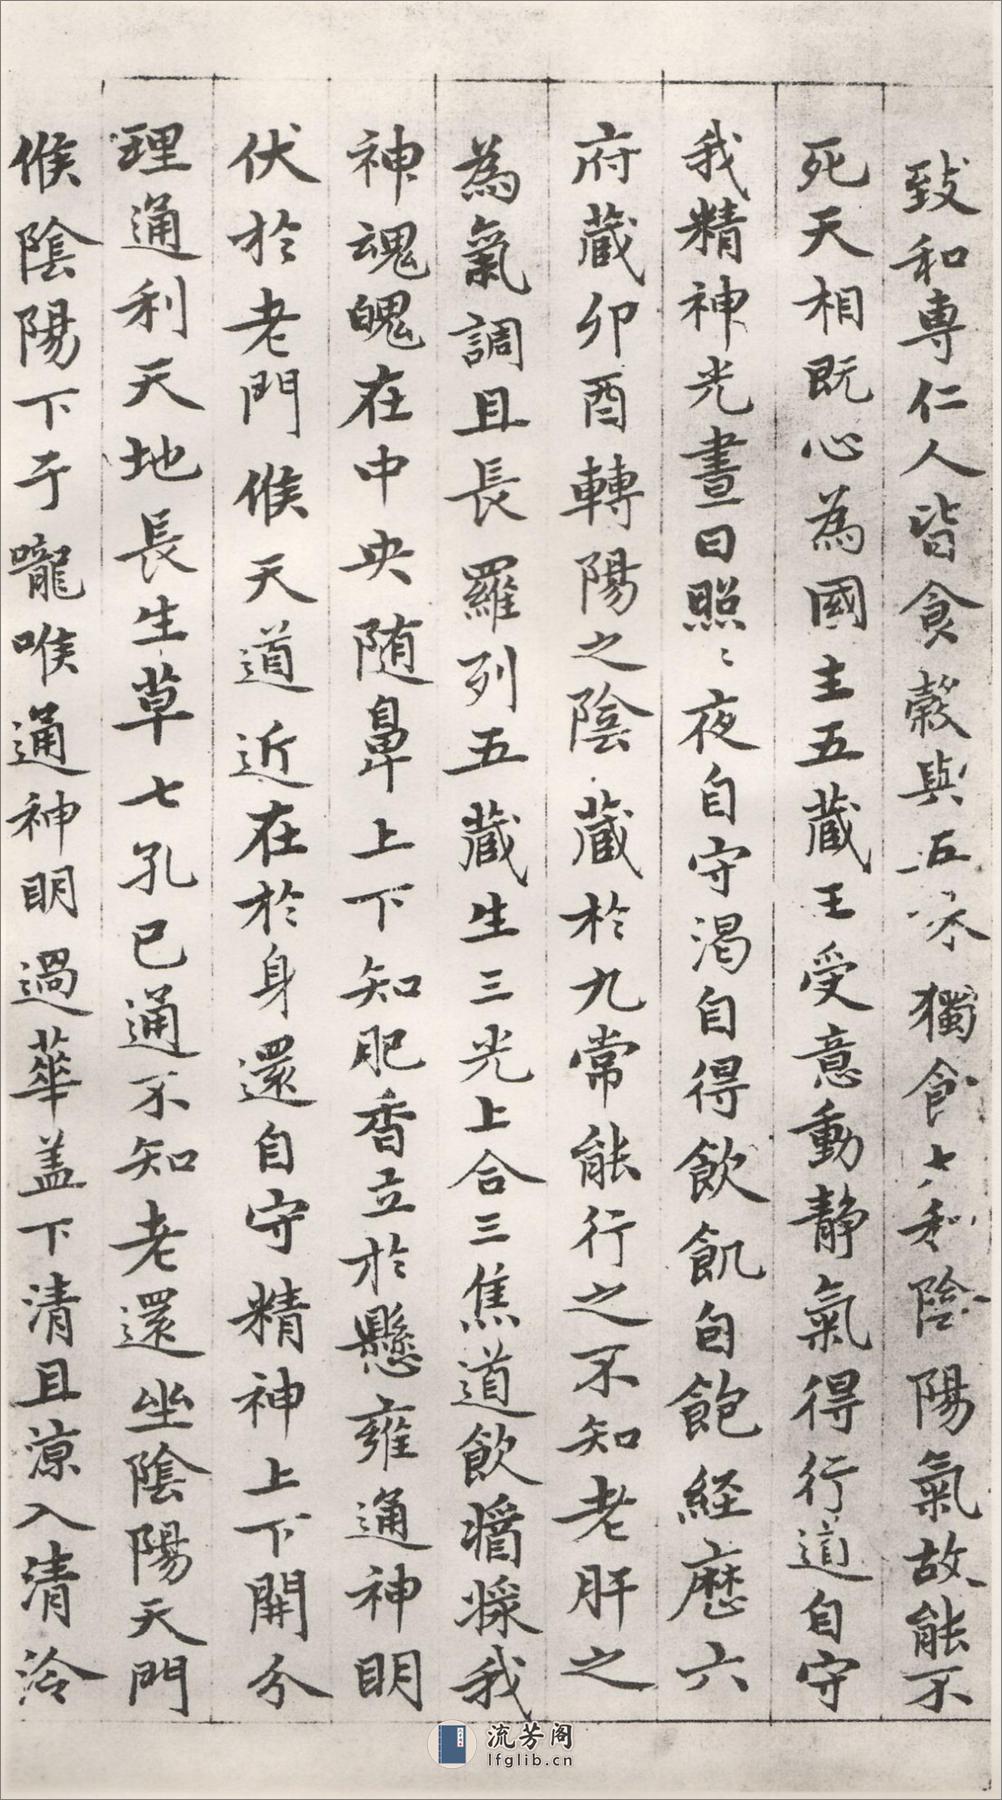 致和專仁人皆食穀與五味獨食太和陰陽氣故能不
死天相既心為國主五藏王受意動静氣得行道自守
我精神光晝日照〻夜自守渴自得飲飢自飽経歷六
府藏卯酉轉陽之陰藏於九常能行之不知老肝之
為氣調且長羅列五藏生三光上合三焦道飲醬漿我
神魂魄在中央随鼻上下知肥香立於懸雍通神明
伏於老門候天道近在於身還自守精神上下開分
理通利天地長生草七孔已通不知老還坐陰陽天門
候陰陽下于嚨喉通神明過華盖下清且涼入清泠
流芳阁
lfglib.cn